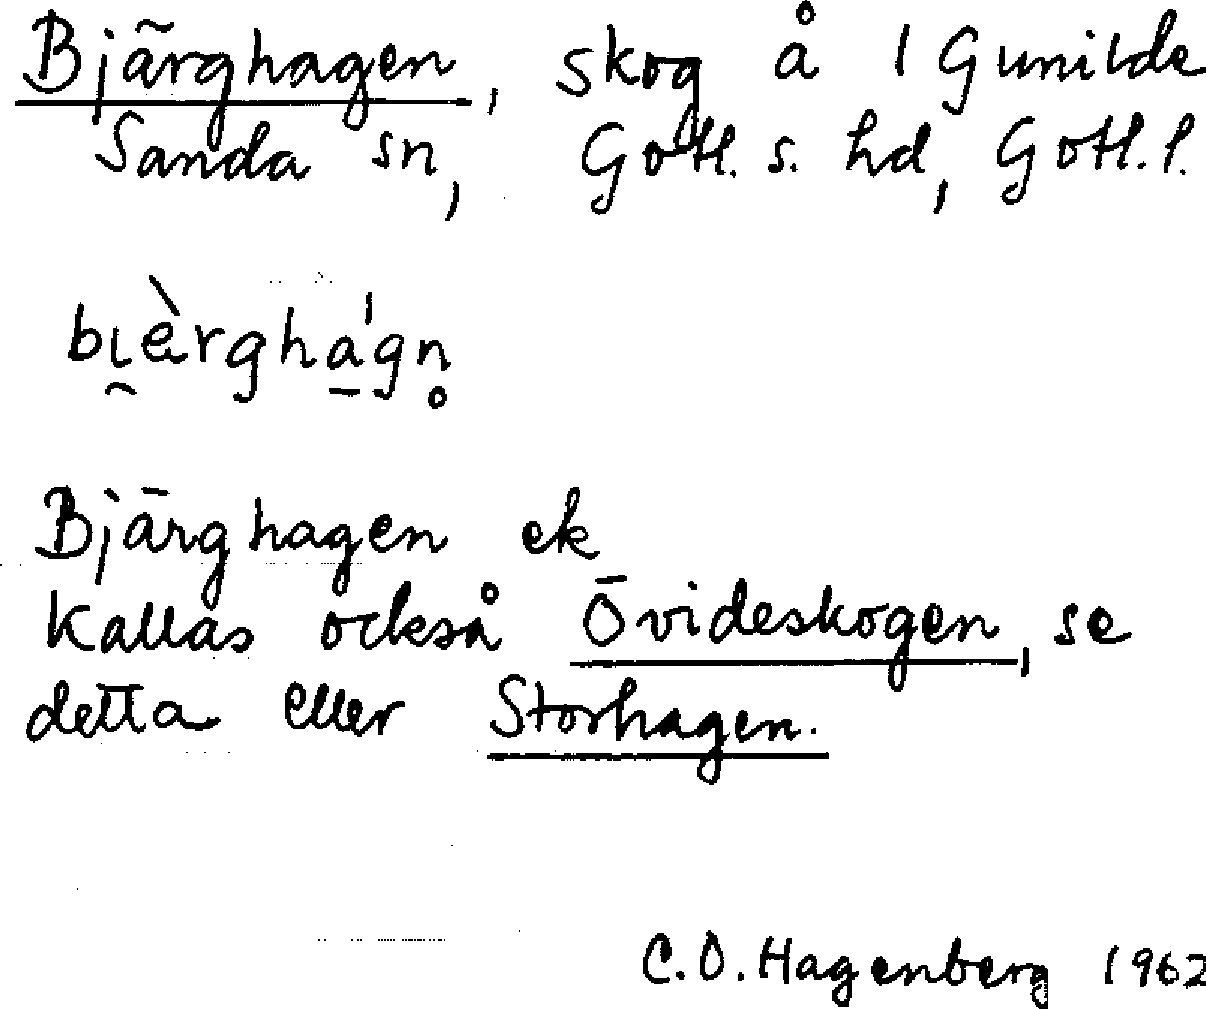 Bjärghagen, skog å 1 Gunilde
Sanda sn, Gotl. s. hd, Gotl. l.
bi̯æ̀rghá̱gn̥
Bjärghagen ek
kallas också Övideskogen, se
detta eller Storhagen.
C.O. Hagenberg 1962